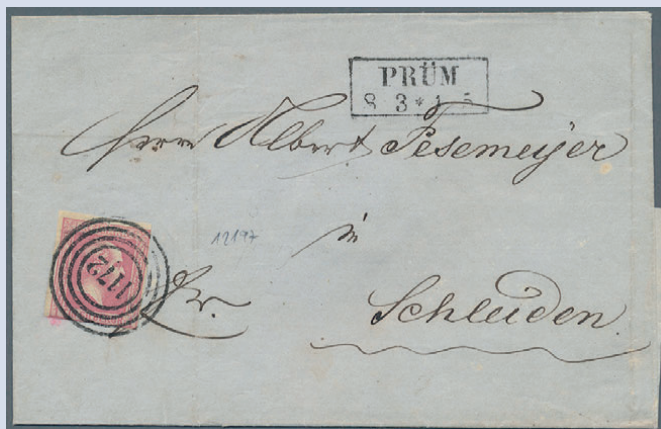 PRÜM
8 3 * 4-5
Herrn Albert Fesemeijer
12197
in
1172
fr.
Schleiden.